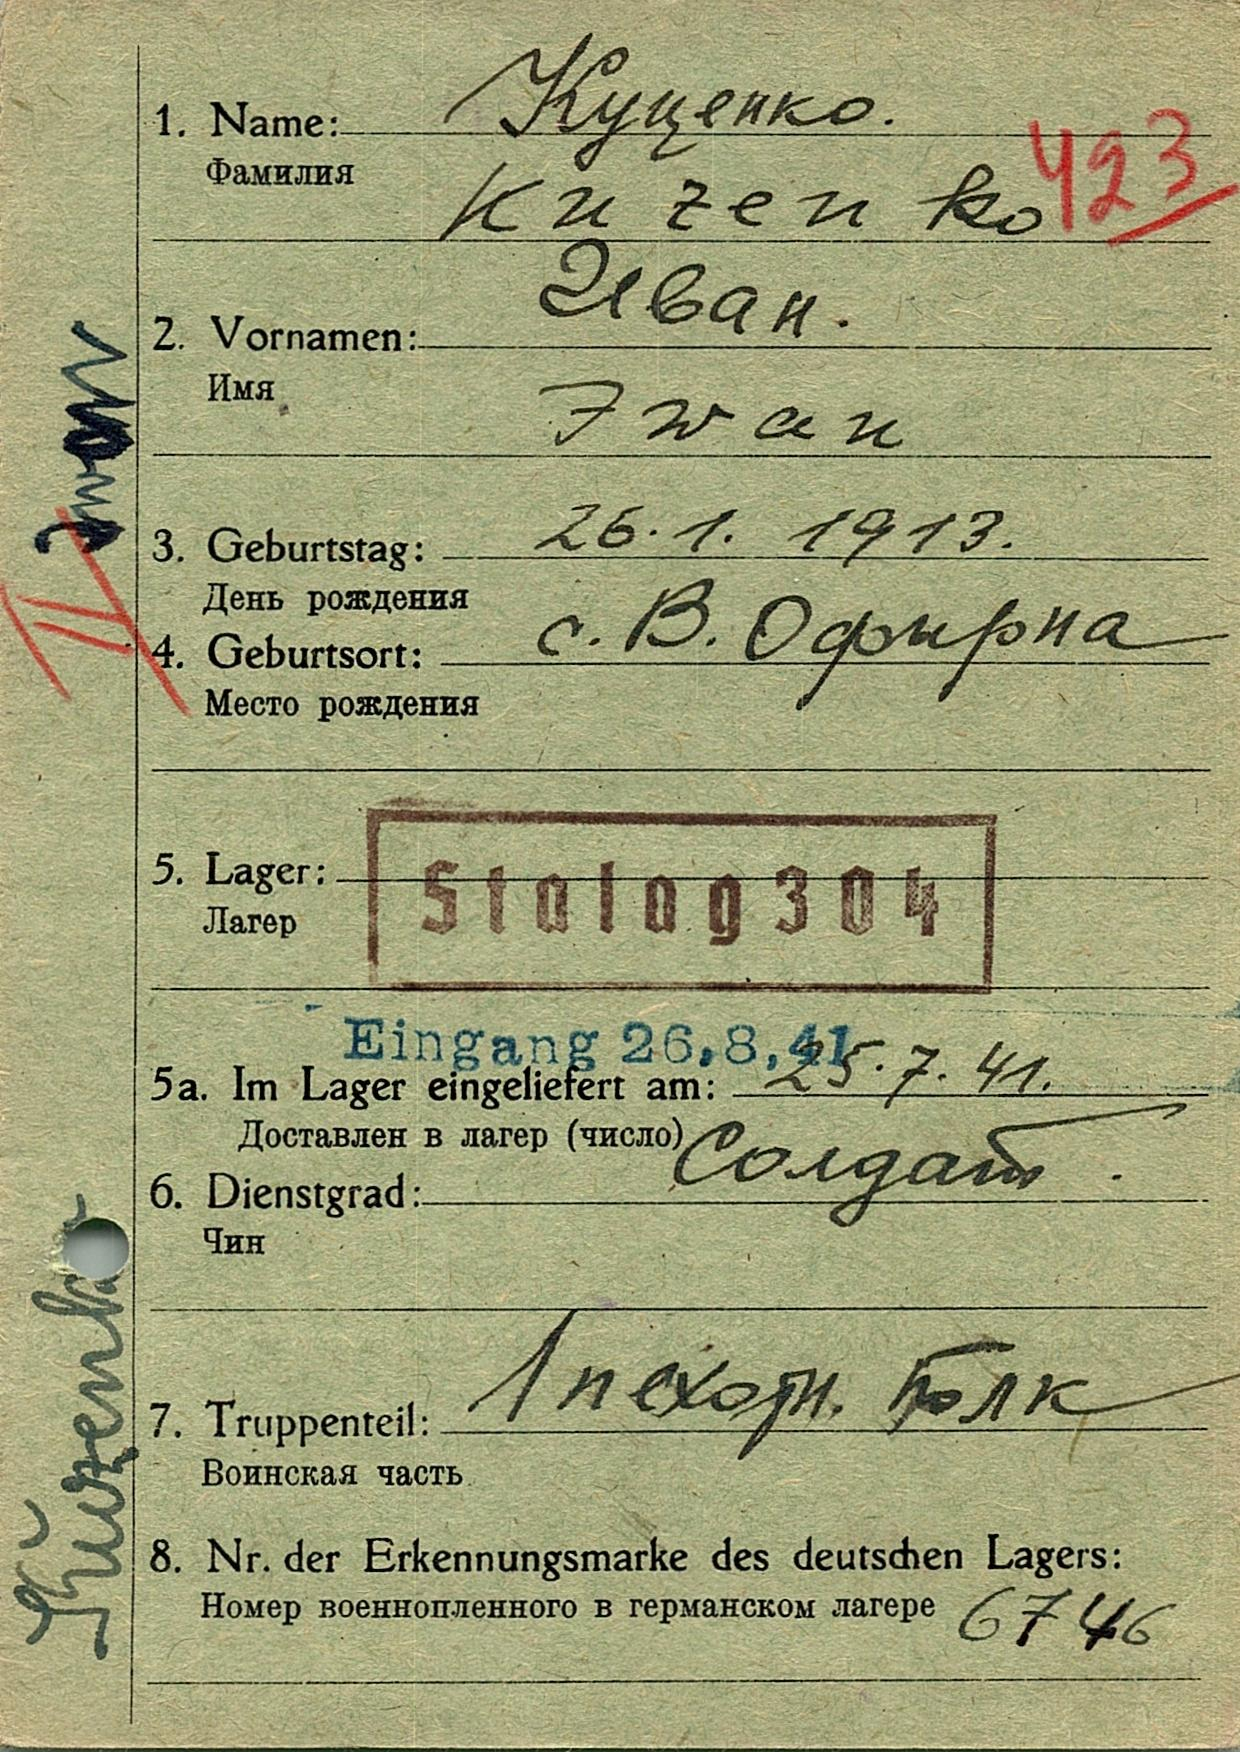 1. Name: Куценко.
Фамилия
423
Kuzenko
Иван.
2. Vornamen:
Имя
Iwan
3. Geburtstag: 26.1. 1913.
День рождения
4. Geburtsort: с. В. Офирна
Место рождения
5. Lager: Stalag 304
Лагер
Eingang 26.8.41
5a. Im Lager eingeliefert am: 25.7.41.
Доставлен в лагер (число)
6. Dienstgrad: Солдат.
Чин
7. Truppenteil: 1 пехотн. полк
Воинская часть
8. Nr. der Erkennungsmarke des deutschen Lagers:
Номер военнопленного в германском лагере 6746
Kuzenko
Iwan
II